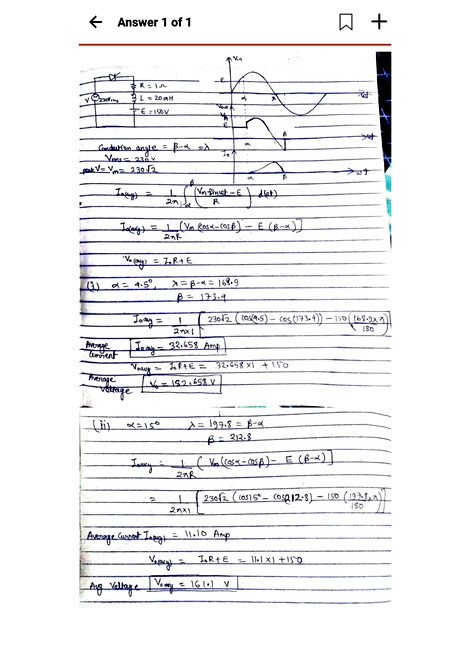 Answer 1 of 1
R = 1Ω
V 230Vrms L = 20mH
E = 150V
Vin
E
α π ωt
Vo
E
α β ωt
Io
α β ωt
Conduction angle = β-α = λ
Vrms = 230V
peak V = Vm = 230√2
Io(avg) = 1/2π ∫α^β (Vm Sinωt - E / R) d(ωt)
Io(avg) = 1/2πR [Vm (cosα - cosβ) - E (β-α)]
Vo(avg) = IoR + E
(i) α = 4.5°, λ = β-α = 168.9
β = 173.4
Io avg = 1/2π×1 [230√2 (cos(4.5) - cos(173.4)) - 150 (168.9×π/180)]
Average Current Io avg = 32.658 Amp
Vo avg = IoR+E = 32.658×1 + 150
Average Voltage Vo = 182.658 V
(ii) α = 15° λ = 197.8 = β-α
β = 212.8
Io avg = 1/2πR [Vm (cosα - cosβ) - E (β-α)]
= 1/2π×1 [230√2 (cos15° - cos212.8) - 150 (197.8×π/180)]
Average Current Io(avg) = 11.10 Amp
Vo(avg) = IoR+E = 11.1×1 + 150
Avg Voltage Vo avg = 161.1 V